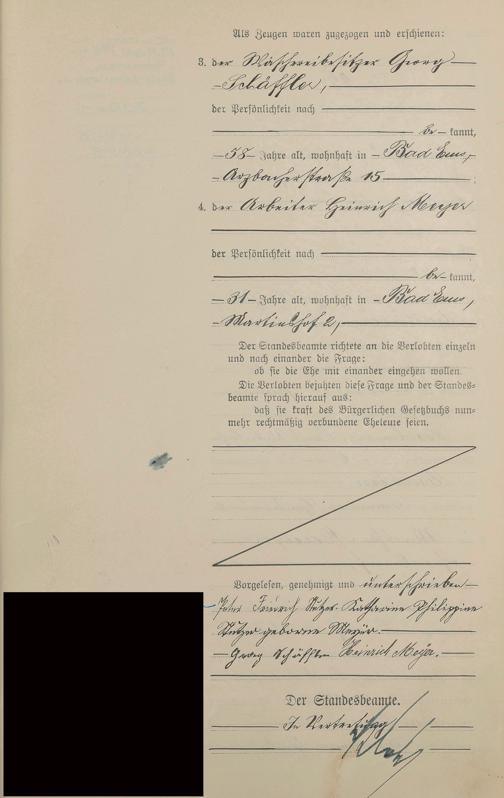 Als Zeugen waren zugezogen und erschienen:
3. der Wäschereibesitzer Georg
Schäffler,
der Persönlichkeit nach
be kannt,
58 Jahre alt, wohnhaft in Bad Ems,
Arzbacherstraße 15 ;
4. der Arbeiter Heinrich Meyer
der Persönlichkeit nach
be kannt,
31 Jahre alt, wohnhaft in Bad Ems,
Martinshof 2,
Der Standesbeamte richtete an die Verlobten einzeln
und nach einander die Frage:
ob sie die Ehe mit einander eingehen wollen.
Die Verlobten bejahten diese Frage und der Standes-
beamte sprach hierauf aus:
daß sie kraft des Bürgerlichen Gesetzbuchs nun-
mehr rechtmäßig verbundene Eheleute seien.
Vorgelesen, genehmigt und unterschrieben
Katharine Philippine
geborne
Georg Schäffler Heinrich Meyer.
Der Standesbeamte.
In Vertretung